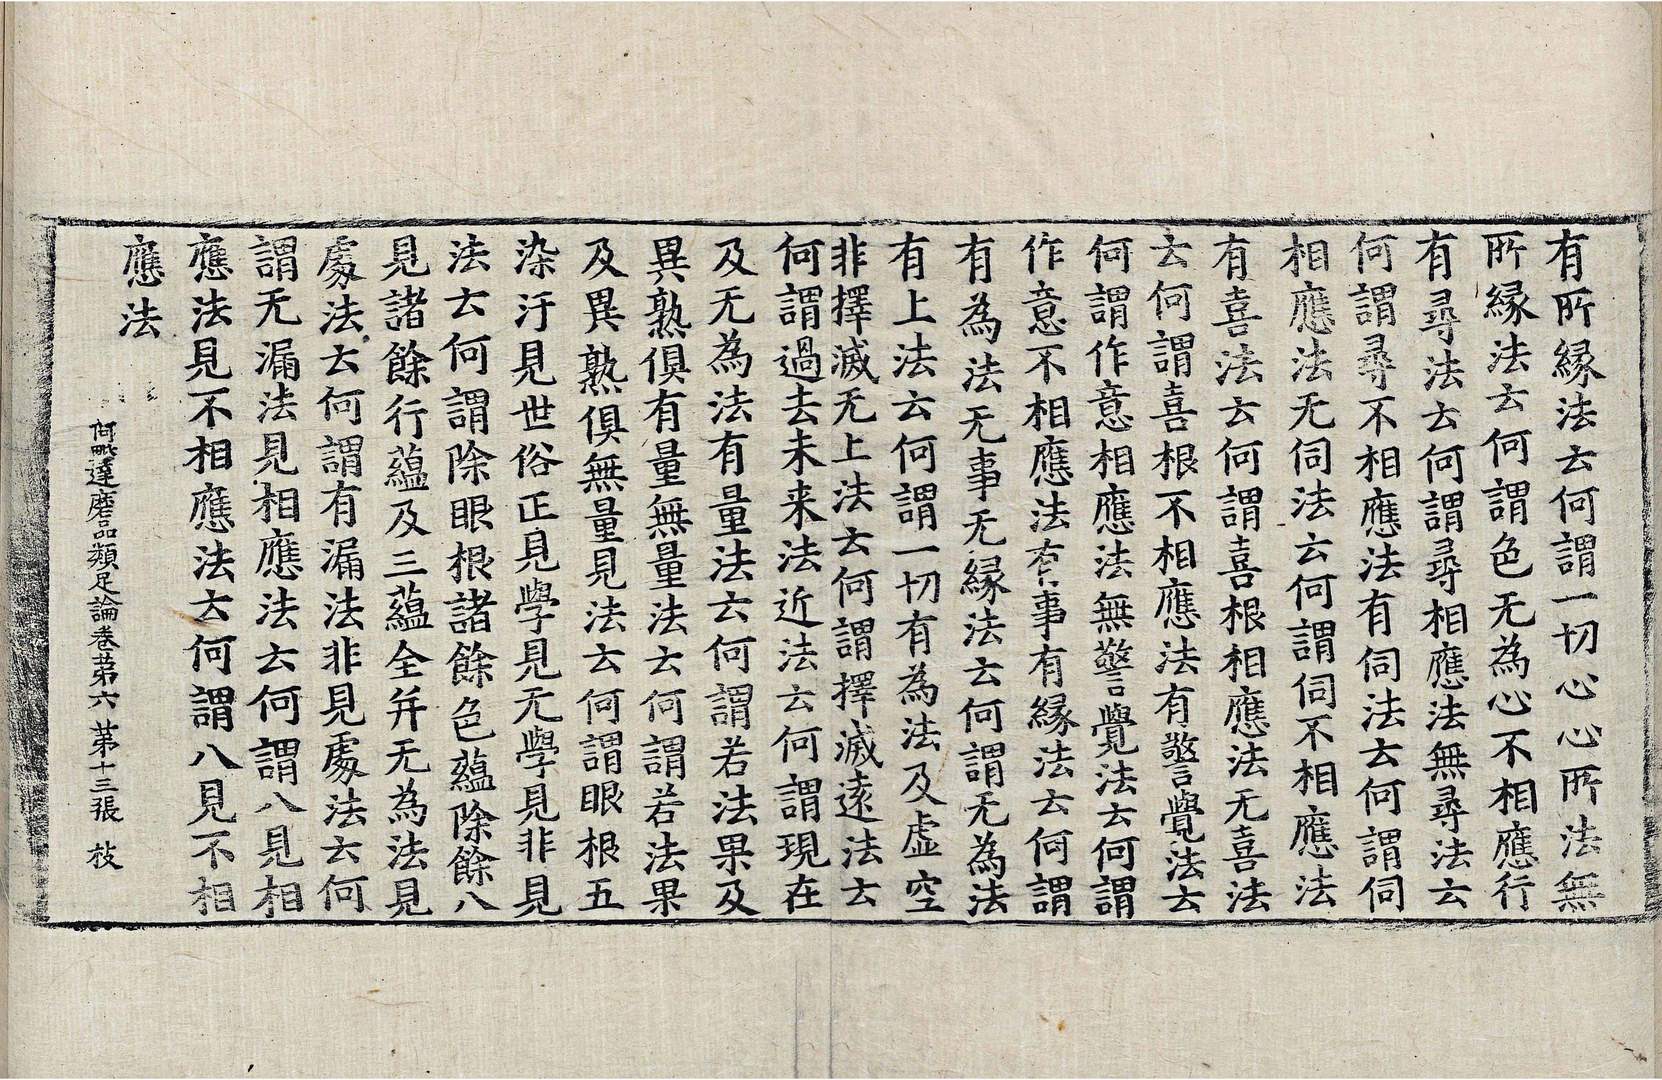 有所緣法云何謂一切心心所法無
所緣法云何謂色无為心不相應行
有尋法云何謂尋相應法無尋法云
何謂尋不相應法有伺法云何謂伺
相應法无伺法云何謂伺不相應法
有喜法云何謂喜根相應法无喜法
云何謂喜根不相應法有警覺法云
何謂作意相應法無警覺法云何謂
作意不相應法有事有緣法云何謂
有為法无事无緣法云何謂无為法
有上法云何謂一切有為法及虛空
非擇滅无上法云何謂擇滅遠法云
何謂過去未来法近法云何謂現在
及无為法有量法云何謂若法果及
異熟俱有量無量法云何謂若法果
及異熟俱無量見法云何謂眼根五
染汙見世俗正見學見无學見非見
法云何謂除眼根諸餘色蘊除餘八
見諸餘行蘊及三蘊全并无為法見
處法云何謂有漏法非見處法云何
謂无漏法見相應法云何謂八見相
應法見不相應法云何謂八見不相
應法
阿毗達磨品類足論卷苐六 苐十三張 枝